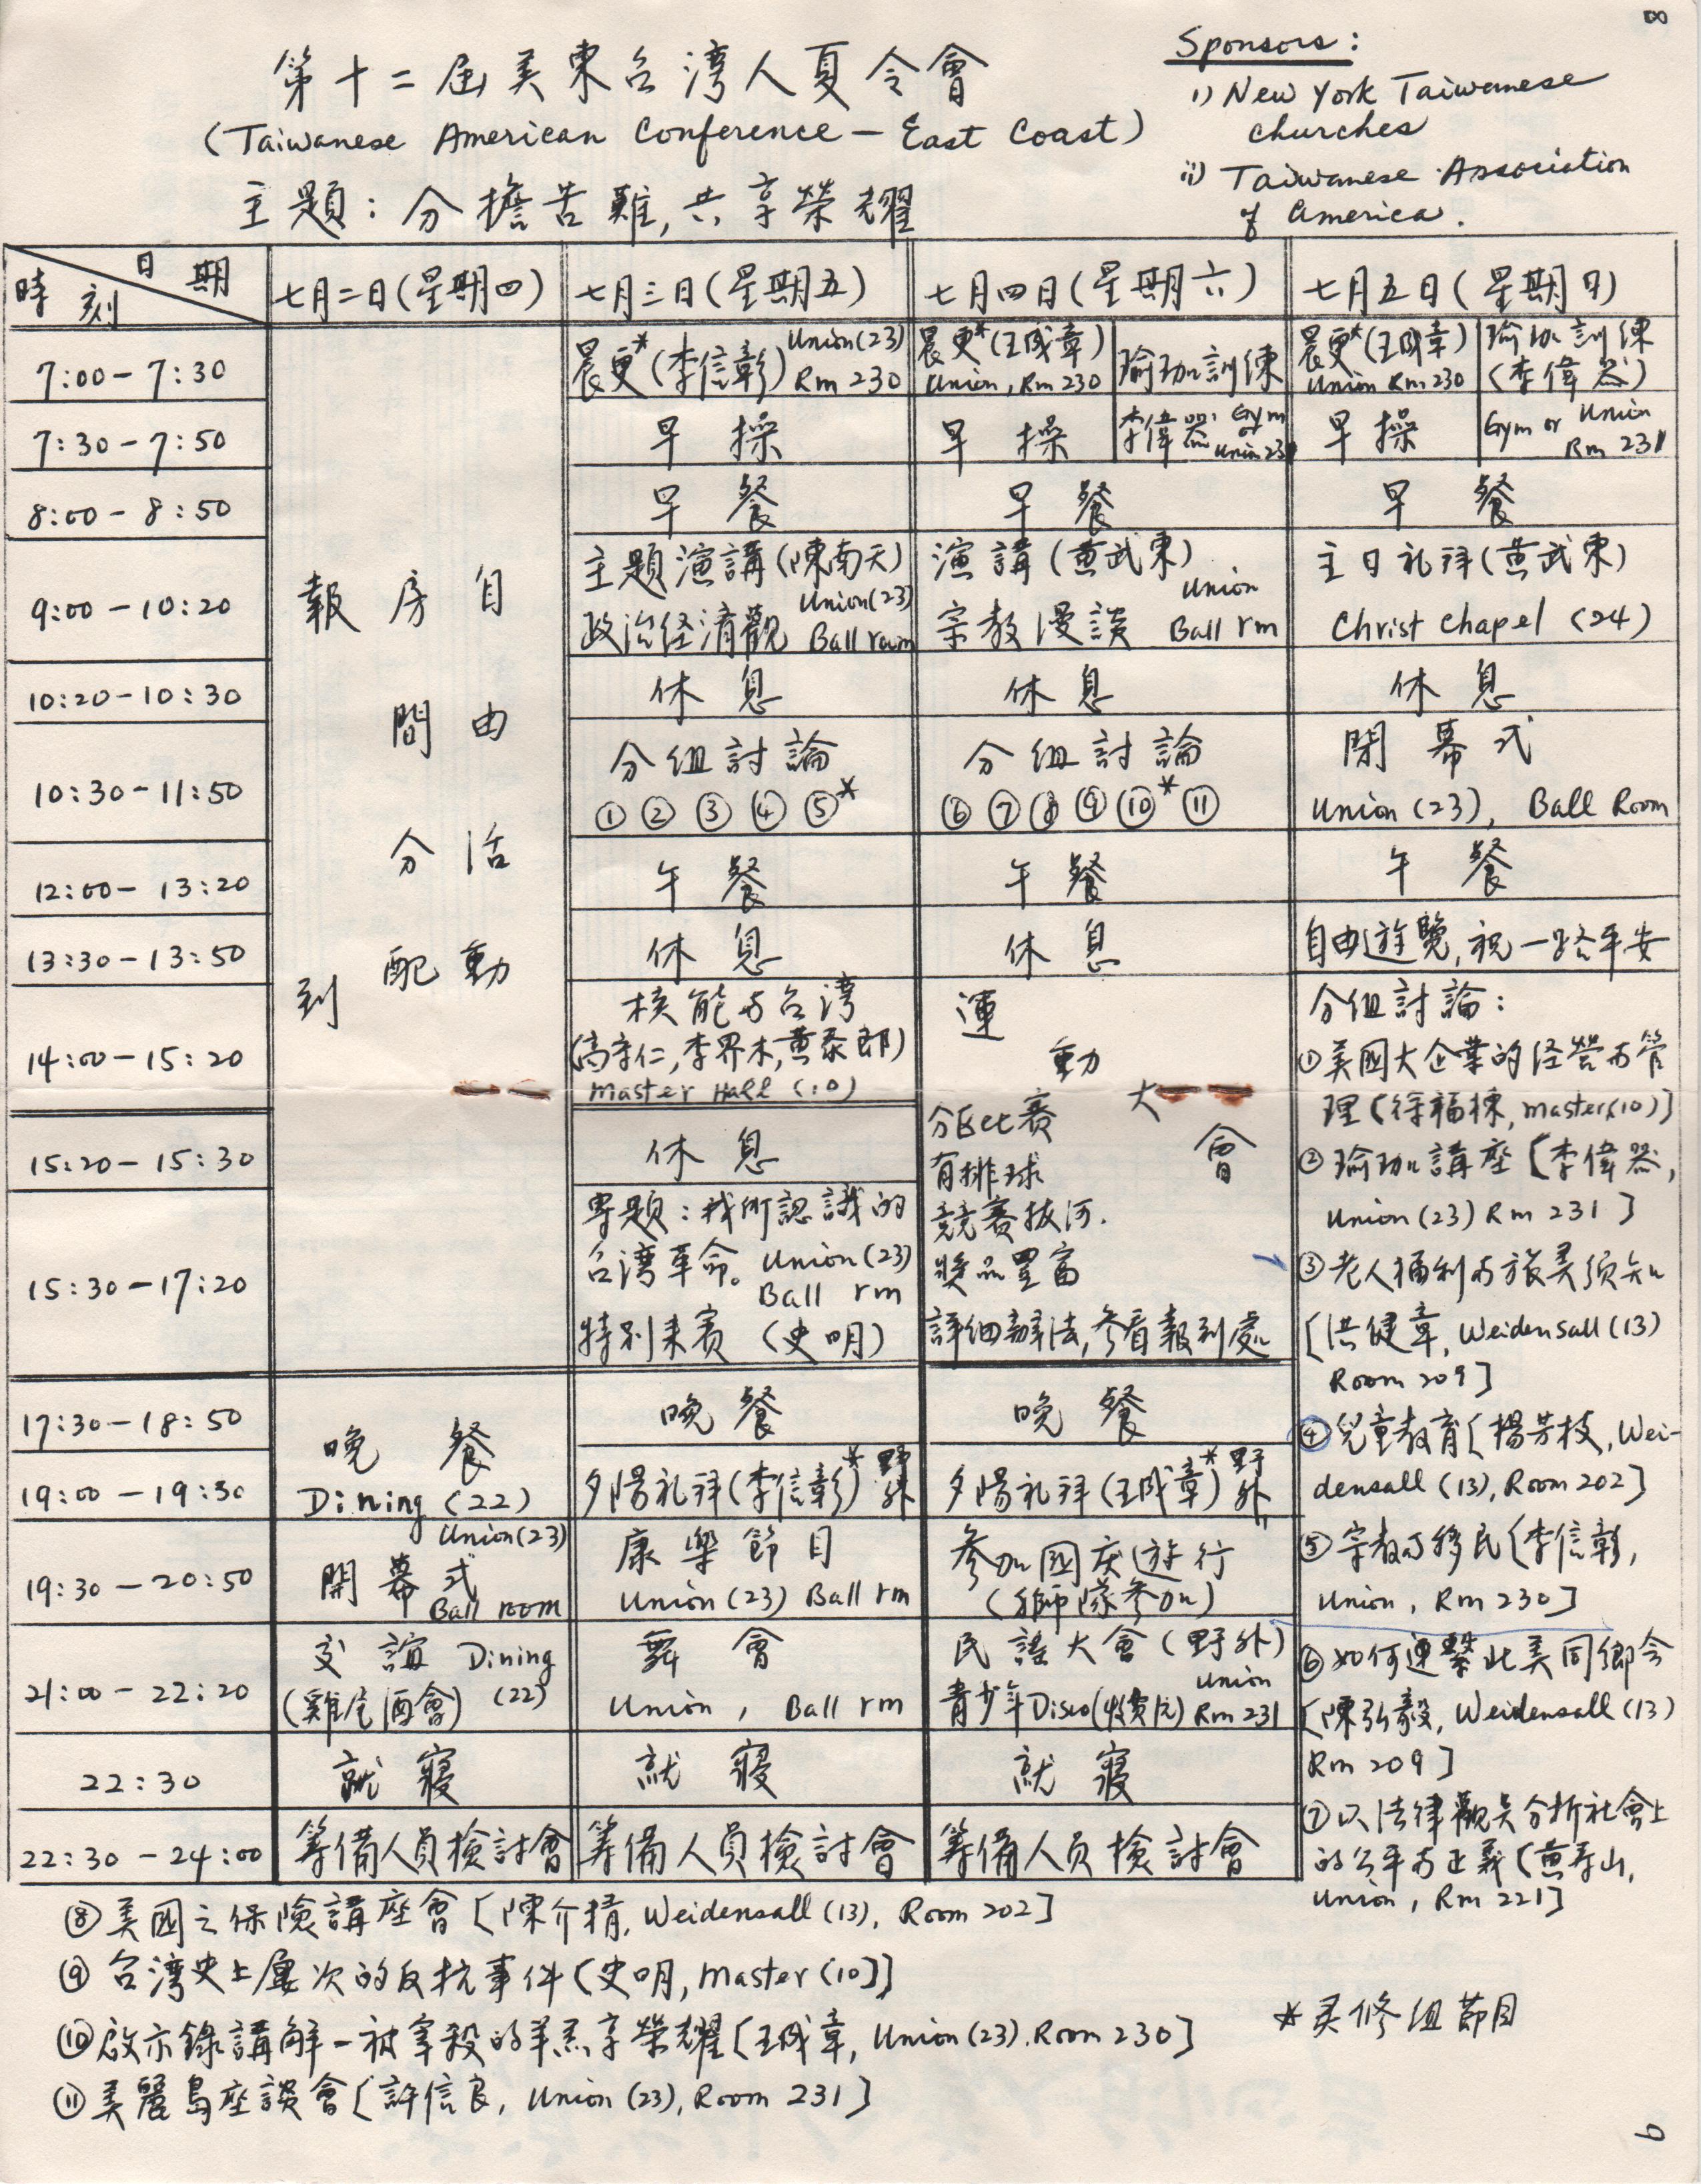 8
第十二屆美東台灣人夏令會
(Taiwanese American Conference — East Coast)
主題：分擔苦難，共享榮耀
Sponsors:
i) New York Taiwanese
churches
ii) Taiwanese Association
of America.
日期
時刻
七月二日(星期四)
七月三日(星期五)
七月四日(星期六)
七月五日(星期日)
7:00-7:30
晨更*(李信彰) Union(23)
Rm 230
晨更*(王成章)
Union, Rm 230
瑜珈訓練
晨更*(王成章)
Union Rm 230
瑜珈訓練
(李偉器)
7:30-7:50
早操
早操
李偉器 Gym
or
Union 231
早操
Gym or Union
Rm 231
8:00-8:50
早餐
早餐
早餐
報到
房間分配
自由活動
9:00-10:20
主題演講(陳南天)
政治经濟觀 Union(23)
Ball room
演講(黃武東)
宗教漫談 Union
Ball rm
主日礼拜(黃武東)
Christ Chapel (24)
10:20-10:30
休息
休息
休息
10:30-11:50
分组討論
① ② ③ ④ ⑤*
分组討論
⑥ ⑦ ⑧ ⑨ ⑩* ⑪
閉幕式
Union (23), Ball Room
12:00-13:20
午餐
午餐
午餐
13:30-13:50
休息
休息
自由遊覽，祝一路平安
14:00-15:20
核能与台湾
(高李仁，李界木，黃泰郎)
Master Hall (10)
運動大會
分區比賽
有排球
競賽拔河.
獎品豐富
詳细辦法，參看報到處
15:20-15:30
休息
15:30-17:20
專題：我所認識的
台湾革命。 Union(23)
Ball rm
特别来賓 (史明)
17:30-18:50
晚餐
Dining (22)
晚餐
晚餐
19:00-19:30
夕陽礼拜(李信彰)* 野外
夕陽礼拜(王成章)* 野外
19:30-20:50
開幕式 Union(23)
Ball room
康樂節目
Union (23) Ball rm
參加國庆遊行
(獅隊參加)
21:00-22:20
交誼 Dining
(雞尾酒會) (22)
舞會
Union, Ball rm
民謠大會(野外)
青少年Disco(收費) Union
Rm 231
22:30
就寢
就寢
就寢
22:30-24:00
籌備人員檢討會
籌備人員檢討會
籌備人员檢討會
分组討論：
①美國大企業的经營与管
理〔徐福棟, Master(10)〕
②瑜珈講座〔李偉器,
Union(23) Rm 231〕
③老人福利与旅美須知
〔洪健章, Weidensall (13)
Room 209〕
④兒童教育〔楊芳枝, Wei-
densall (13), Room 202〕
⑤宗教与移民〔李信彰,
Union, Rm 230〕
⑥如何連繫北美同鄉会
〔陳弘毅, Weidensall (13)
Rm 209〕
⑦以法律觀点分析社會上
的公平与正義〔黃寿山,
Union, Rm 221〕
⑧美國之保險講座會〔陳介精, Weidensall (13), Room 202〕
⑨台湾史上屢次的反抗事件〔史明, Master (10)〕
⑩啟示錄講解－被宰殺的羊羔享榮耀〔王成章, Union (23). Room 230〕
⑪美麗島座談會〔許信良, Union (23), Room 231〕
*灵修组節目